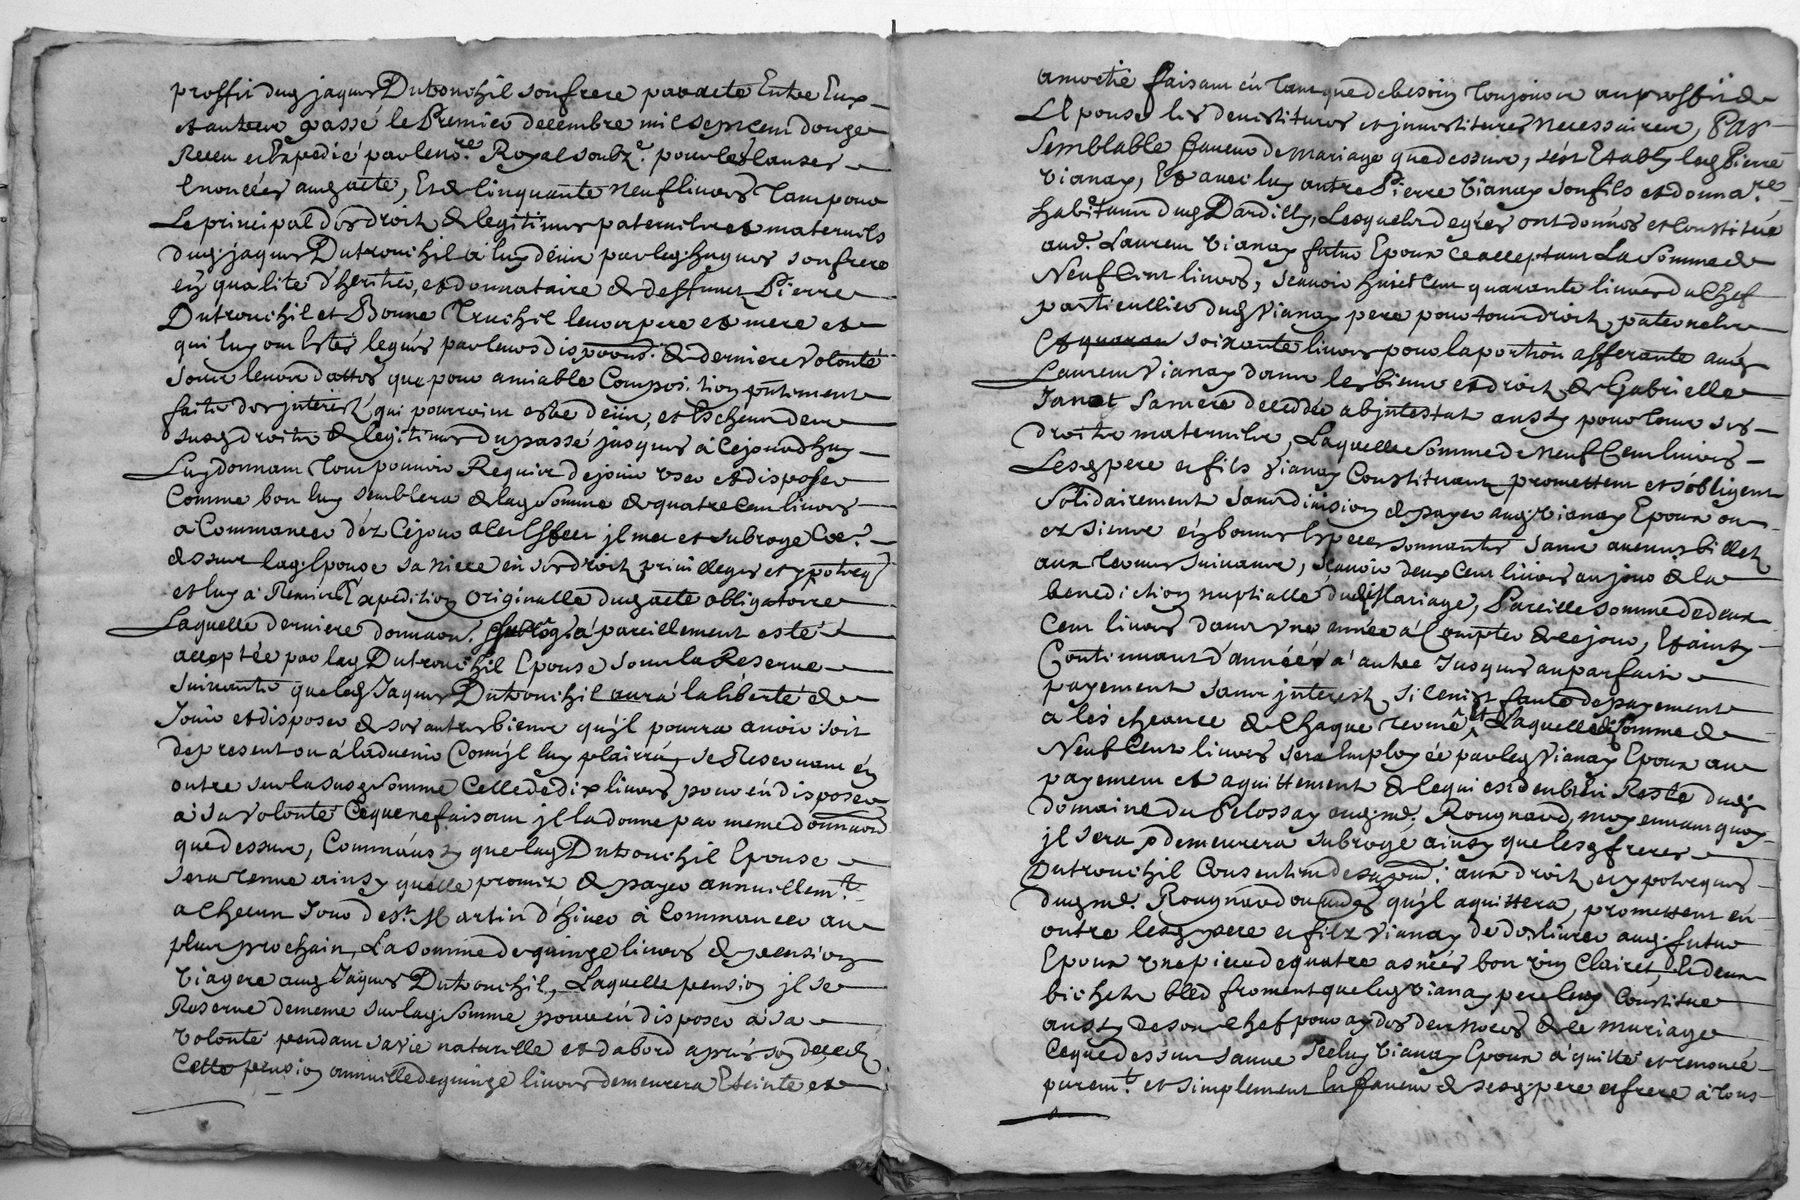 proffit dug jaques Dutrouchil son frere par acte Entre Eux
et auteur passé le Premier decembre mil sept cent douze
Receu et Expedié par le no.re Royal soubz.e pour les causes
Enoncées aud acte, Et de Cinquante neuf livres tant pour
Le principal des droits & legitimes paternels et maternels
dug. jaques Dutrouchil à luy deüe par leg. hugues son frere
en qualité d'heritier, et donnataire de deffunct Pierre
Dutrouchil et Bonne Truchil leurs pere et mere et
qui luy ont Estés legués par leurs dispoons. & derniere volonté
sous leurs dattes que pour amiable Composi.tion
faite des interest qui pourroint estre deüe, et Escheus de
susd droits & legitimes du passé jusques à Cejourdhuy
Luy donnant tout pouvoir Requis de jouir user et disposer
Comme bon luy semblera & lag somme de quatre cent livres
a Commancer déz Cejour a cet Effect jl met et subroge
dessus lag. Epouse sa niece en ses droits privilleges et ypoteq
et luy a Remis Expedition originalle dug acte obligatoire
Laquelle derniere donnaon. à pareillement esté
acceptée par lag Dutrouchil Epouse sous la Reserve
suivante que leg Jaques Dutrouchil aura la liberté de
Jouir et disposer de ses autres biens qu'jl pourra avoir soit
de present ou à l'advenir Com'jl luy plairra, se Reservant en
outre sur la susg somme Celle de dix livres pour en disposer
à sa volonté Ce que ne faisant jl la donne par meme donnaon
que dessus, Comm'aussy que lag Dutrouchil Epouse
sera tenue ainsy qu'elle promet de payer annuellem.t
a Checun Jour de st. Martin d'hiver à Commancer au
plus prochain, La somme de quinze livres de pension
viagere aug Jaques Dutrouchil, Laquelle pension jl se
Reserve de meme sur lag. somme pour en disposer à sa
volonté pendant sa vie naturelle et d'abord apres son deced
Cette pension annuelle de quinze livres demeurera Eteinte et
amortie faisant en tant que de besoin toujours au proffit de
L'Epouse les devestitures et jnvestitures necessaires, Par
semblable faveur de mariage que dessus, s'est Estably leg Pierre
vianay, Et avec luy autre Pierre vianay son fils et donna.re
habitant dug Dardilly, Lesquels de gres ont donnés et Constitué
aud. Laurent vianay futur Epoux ce acceptant La somme de
Neuf Cent livres, scavoir huict Cent quarante livres du Chef
particullier dug Vianay pere pour tous droits paternels
Et soixante livres pour la portion afferante aug
Laurent Vianay dans les biens et droits de Gabrielle
Janet sa mere decedée abjntestat aussy pour tous ses
droits maternels, Laquelle somme de neuf Cent livres
Lesg pere et fils Vianay Constituants promettent et s'obligent
solidairement sans division de payer aug. vianay Epoux ou
es siens en bonnes Especes sonnantes sans aucuns billets
aux termes suivants, scavoir deux Cent livres au jour de la
benediction nuptialle dud Mariage, Pareille somme de deux
Cent livres dans une année à Compter de ce jour, Et ainsy
Continuant d'année à autre Jusques au parfait
payement sans jnterest si ce n'est faute de payement
a l'escheance de Chaque terme, et laquelle somme de
Neuf Cent livres sera Employée par leg Vianay Epoux au
payement et aquittement de ce qui est deub en Reste dug
domaine du Pelossay aug. md. Rougnard, moyennant quoy
jl sera & demeurera subrogé ainsy que lesg freres
Dutrouchil Consentent aux droits et ypoteques
dug md. Rougnard qu'jl aquittera, promettent en
outre lesg pere et fils Vianay de deslivrer aug. futur
Epoux une piece de quatre asnées bon vin Clairet, Et deux
bichets bled froment que leg Vianay pere luy Constitue
aussy de son Chef pour aydes des noces de ce mariage
Ce que dessus sauve Jceluy Vianay Epoux à quitté et renoncé
purem.t et simplement En faveur de sesg. pere et frere à tous